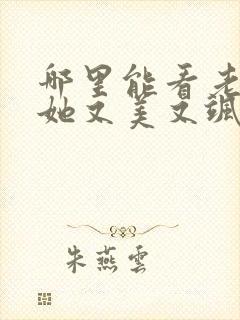 哪里能看老
她又美又飒
朱燕雲